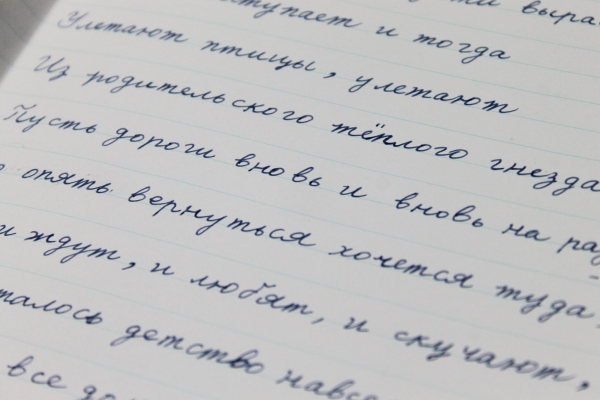 ти выра
ступает и тогда
Улетают птицы, улетают
Из родительского тёплого гнезда
Пусть дороги вновь и вновь на раз-
опять вернуться хочется туда.
и ждут, и любят, и скучают,
талось детство навсе
все до